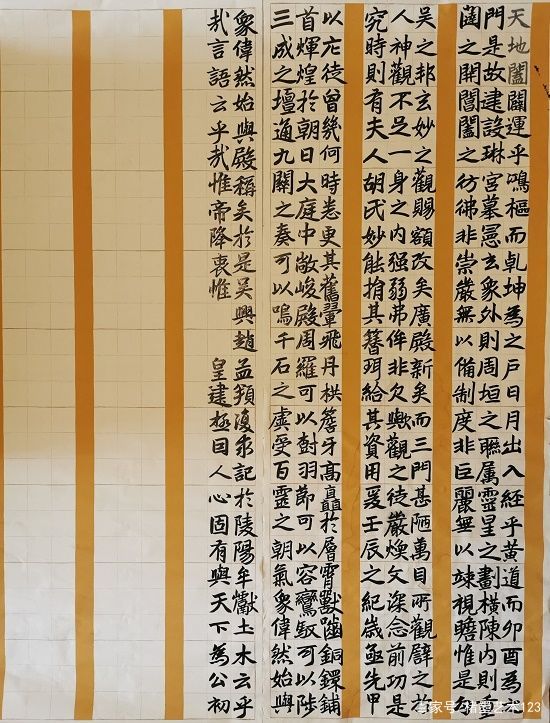 天地闔闢運乎鳴樞而乾坤為之戶日月出入経乎黄道而卯酉為
門是故建設琳宮摹憲玄衆外則周垣之聯属靈星之劃橫陳内則重
闥之開閶闔之彷彿非崇嚴無以備制度非巨麗無以竦視瞻惟是
吳之邦玄妙之觀賜額改矣廣殿新矣而三門甚陋萬目所觀譬之於
人神觀不足一身之内强弱弗侔非欠歟觀之徒嚴煥文深念前功是
究時則有夫人胡氏妙能捐其簪珥給其資用爰壬辰之紀歲亟先甲
以庀徒曾幾何時悉更其舊翬飛丹栱簷牙高矗於層霄獸齧銅鐶鋪
首煇煌於朝日大庭中敞峻殿周羅可以樹羽節可以容鸞馭可以陟
三成之壇通九關之奏可以嗚千石之虡受百靈之朝氣象偉然始與
象偉然始與殿稱矣於是吳興趙孟頫復求記於陵陽牟巘土木云乎
哉言語云乎哉惟帝降衷惟 皇建極曰人心固有與天下為公初